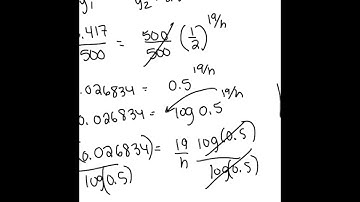 y₁ y₂
.417/500 = 500/500 (1/2)^19/h
.026834 = 0.5^19/h
.026834 = log 0.5^19/h
(0.026834)/log(0.5) = 19/h log(0.5)/log(0.5)